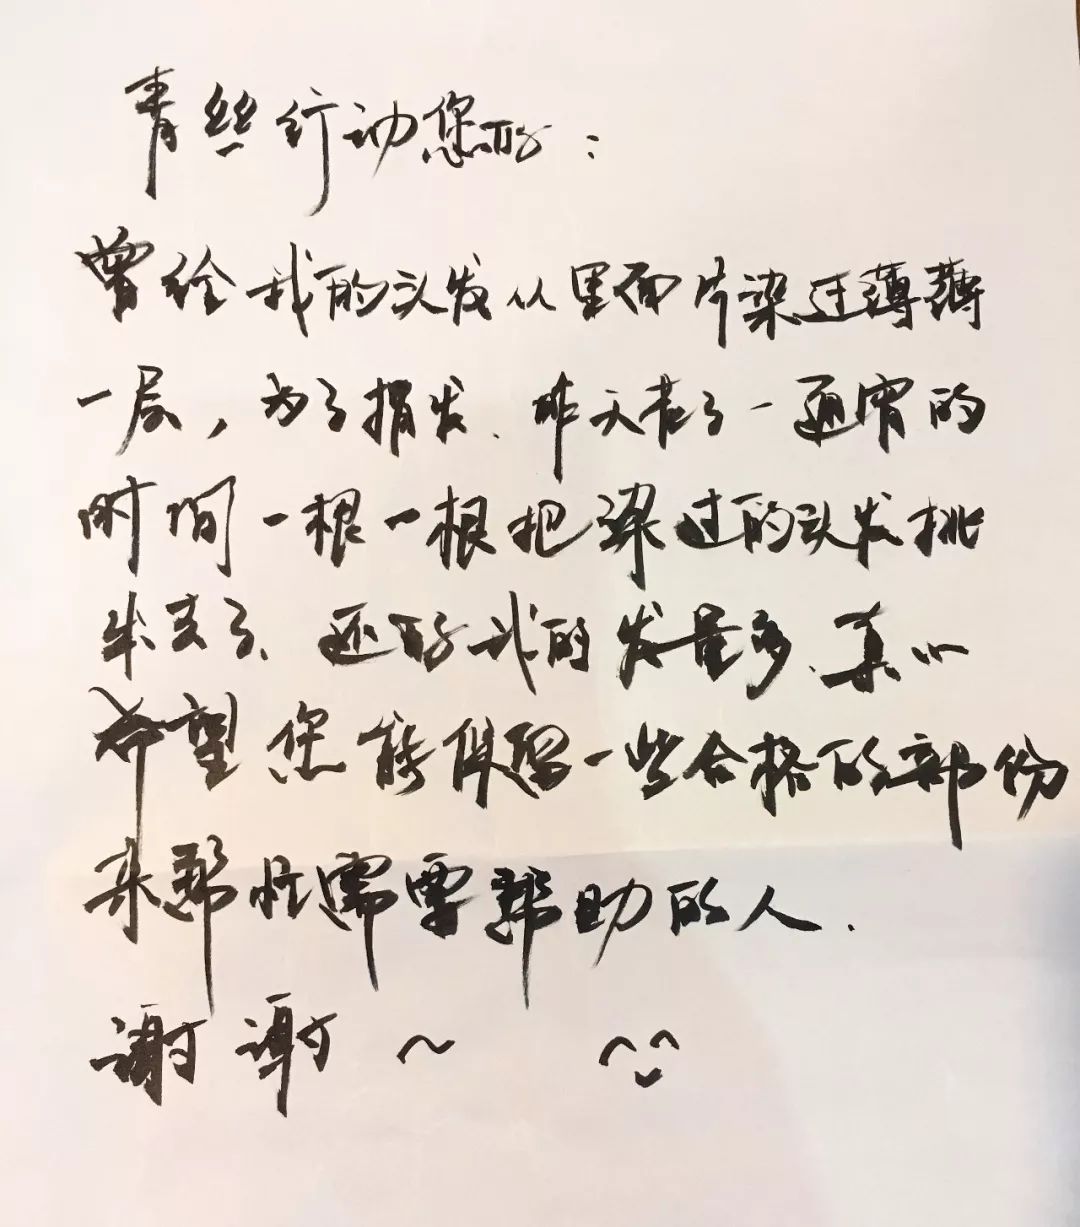 青丝行动您好：
曾给我的头发从里面片染过薄薄
一层，为了捐发、昨天花了一通宵的
时间一根一根把染过的头发挑
出去了、还好我的发量多、真心
希望您能保留一些合格的部份
来帮忙需要帮助的人.
谢谢~ ^_^